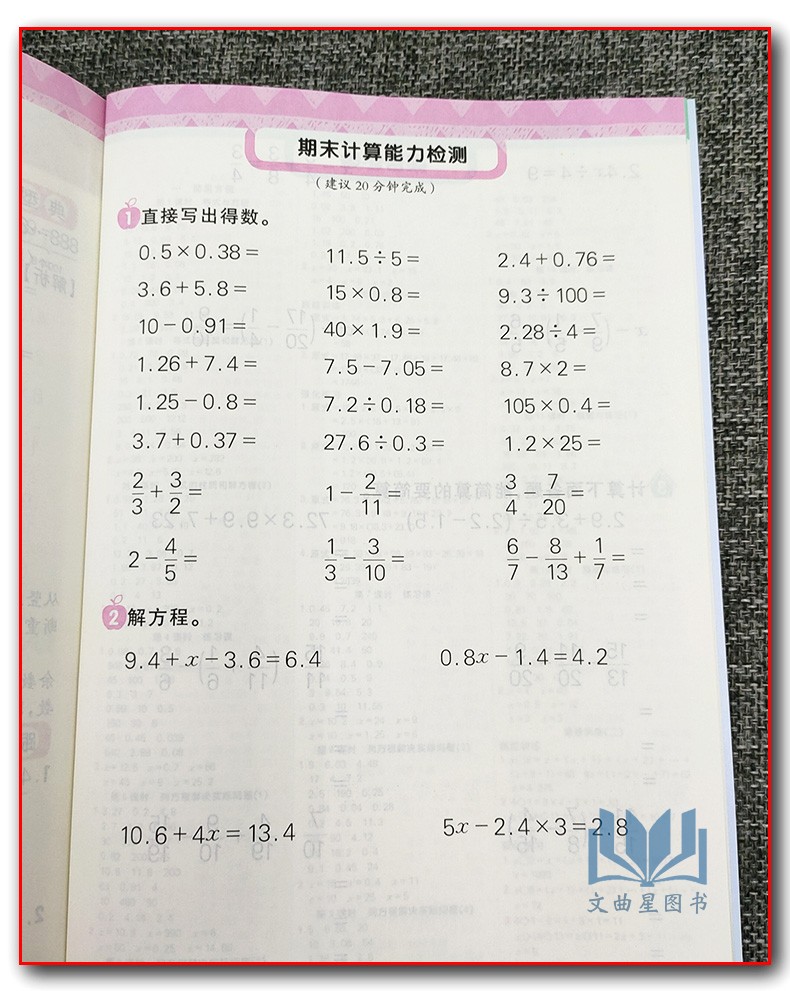 期末计算能力检测
(建议20分钟完成)
1 直接写出得数。
0.5×0.38= 11.5÷5= 2.4+0.76=
3.6+5.8= 15×0.8= 9.3÷100=
10-0.91= 40×1.9= 2.28÷4=
1.26+7.4= 7.5-7.05= 8.7×2=
1.25-0.8= 7.2÷0.18= 105×0.4=
3.7+0.37= 27.6÷0.3= 1.2×25=
2/3+3/2= 1-2/11= 3/4-7/20=
2-4/5= 1/3-3/10= 6/7-8/13+1/7=
2 解方程。
9.4+x-3.6=6.4 0.8x-1.4=4.2
10.6+4x=13.4 5x-2.4×3=2.8
文曲星图书